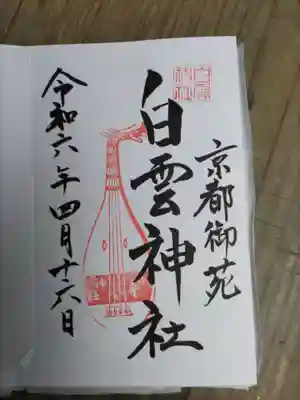 京都御苑
白雲神社
令和六年四月十六日
白雲神社